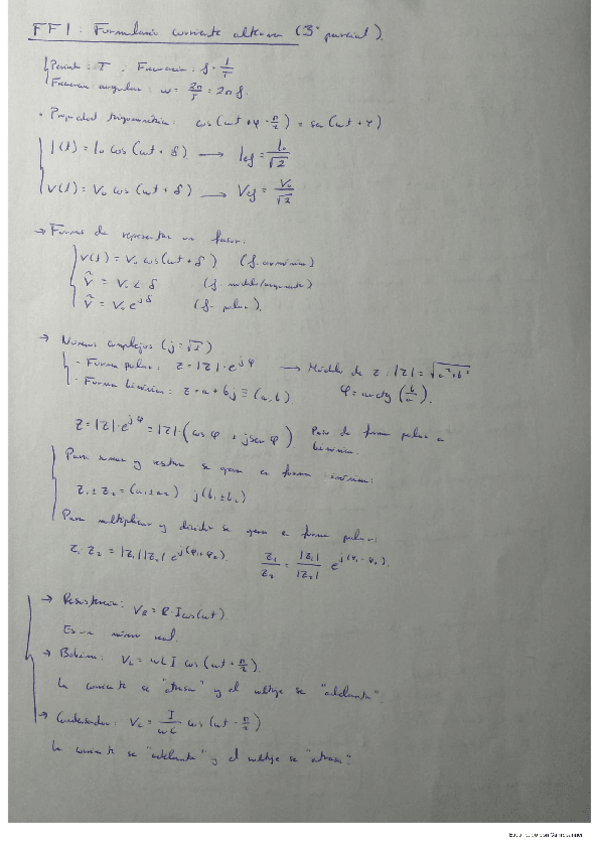 FF1: Formulario corriente alterna (3º parcial).
Periodo: T, Frecuencia: f = 1/T
Frecuencia angular: ω = 2π/T = 2πf.
• Propiedad trigonométrica: cos(ωt + φ - π/2) = sen(ωt + φ)
I(t) = I₀ cos(ωt + δ) → Ief = I₀/√2
V(t) = V₀ cos(ωt + δ) → Vef = V₀/√2
→ Formas de representar un fasor:
V(t) = V₀ cos(ωt + δ) (f. armónica)
V̂ = V₀ ∠ δ (f. módulo/argumento)
V̂ = V₀ e^jδ (f. polar).
→ Números complejos (j = √-1)
- Forma polar: z = |z|·e^jφ → Módulo de z: |z| = √a²+b²
- Forma binómica: z = a + bj ≡ (a, b). φ = arctg (b/a).
z = |z|·e^jφ = |z|·(cos φ + j sen φ) Paso de forma polar a
binómica.
Para sumar y restar se opera en forma binómica:
z₁ ± z₂ = (a₁ ± a₂) j(b₁ ± b₂)
Para multiplicar y dividir se opera en forma polar:
z₁ z₂ = |z₁||z₂| e^j(φ₁+φ₂). z₁/z₂ = |z₁|/|z₂| e^j(φ₁-φ₂).
→ Resistencia: V_R = R·I cos(ωt)
Es un número real.
→ Bobina: V_L = ωL I cos(ωt + π/2).
La corriente se "atrasa" y el voltaje se "adelanta".
→ Condensador: V_c = I/ωC cos(ωt - π/2)
La corriente se "adelanta" y el voltaje se "atrasa".